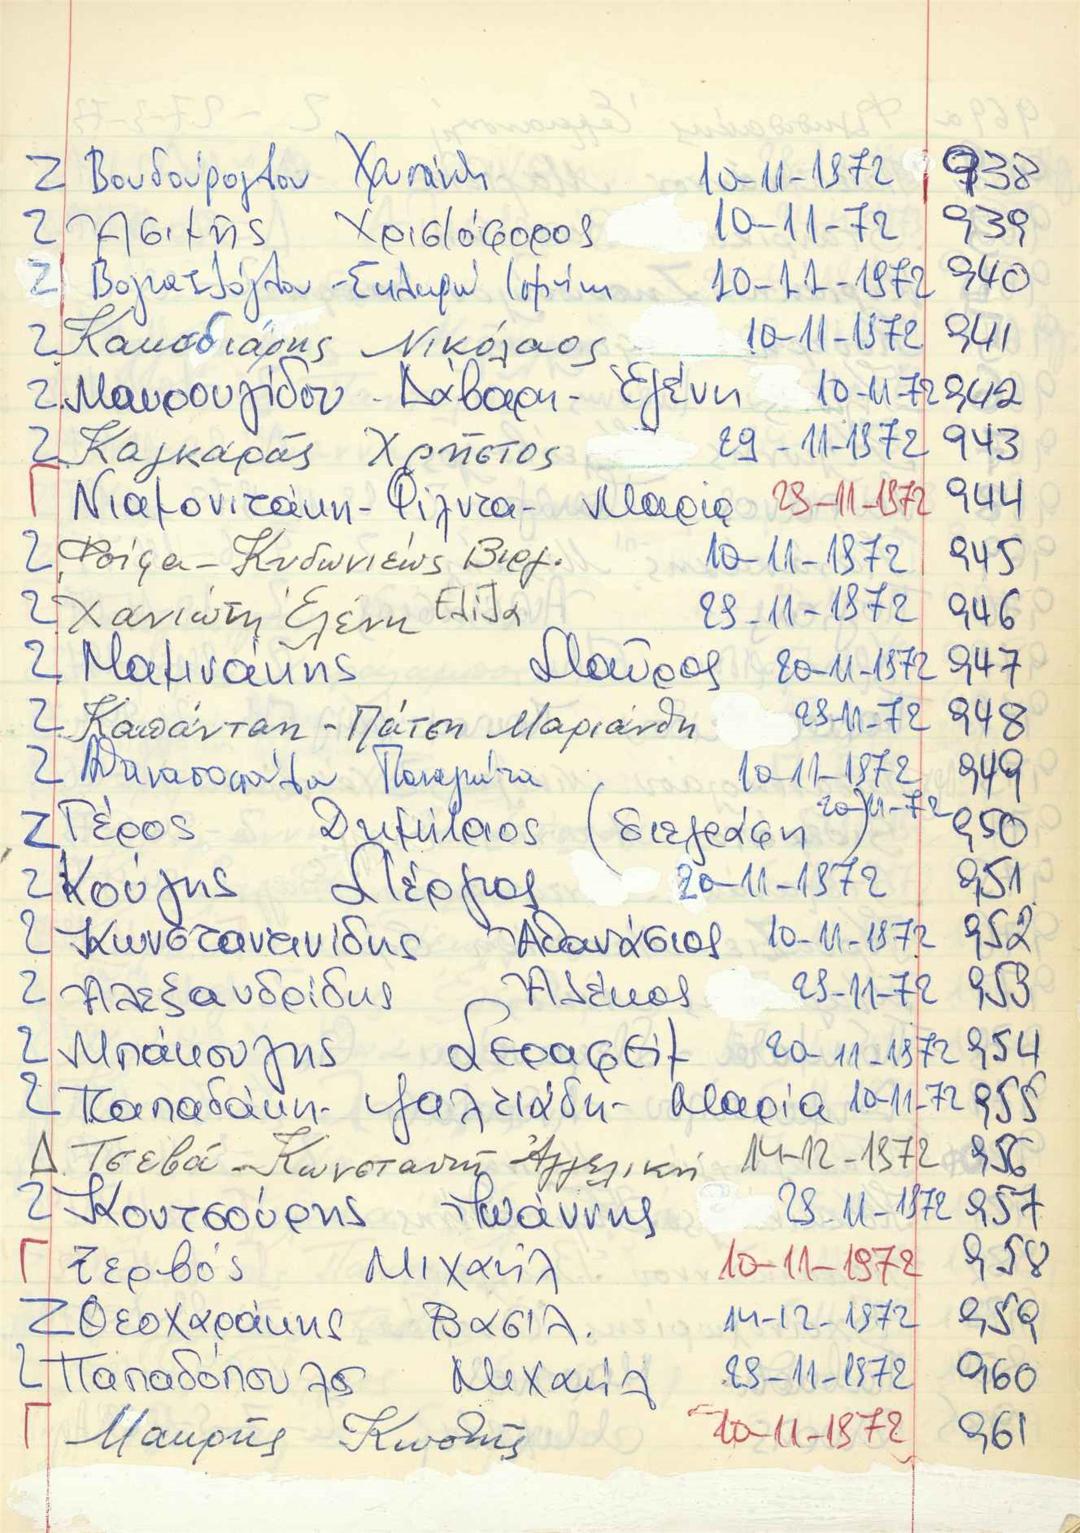 Ζ Βουδούρογλου 10-11-1972 938
Ζ Ασιμής Χριστόφορος 10-11-72 939
Ζ 10-11-1972 940
Ζ Κακοδιάρης Νικόλαος 10-11-1972 941
Ζ Μαυρουλίδου - Δάβαρη - Ελένη 10-11-72 942
Ζ Καλκαράς Χρήστος 29-11-1972 943
Γ Νιαμονιτάκη - Φίλντα - Μαρία 29-11-1972 944
Ζ Κυδωνιέως Βιργ. 10-11-1972 945
Ζ Χανιώτη Ελένη Ελίζα 29-11-1972 946
Ζ Μαμινάκης Σταύρος 20-11-1972 947
Ζ Καπάνταη - Πάτση Μαριάνθη 29-11-72 948
Ζ Αθανασοπούλου Παναγιώτα 10-11-1972 949
Ζ Γέρος Δημήτριος (διεγράφη) 20-11-72 950
Ζ Κούλης Στέργιος 20-11-1972 951
Ζ Κωνσταντινίδης Αθανάσιος 10-11-1972 952
Ζ Αλεξανδρίδης Αλέκος 29-11-72 953
Ζ Μπάκουλης Σεραφείμ 20-11-1972 954
Ζ Παπαδάκη - Ψαλτιάδη - Μαρία 10-11-72 955
Δ Τσεβά - Κωνσταντή Αγγελική 14-12-1972 956
Ζ Κουτσούρης Ιωάννης 29-11-1972 957
Γ Ζερβός Μιχαήλ 10-11-1972 958
Ζ Θεοχαράκης Βασιλ. 14-12-1972 959
Ζ Παπαδόπουλος Μιχαήλ 29-11-1972 960
Γ Μακρής Κωστής 10-11-1972 961